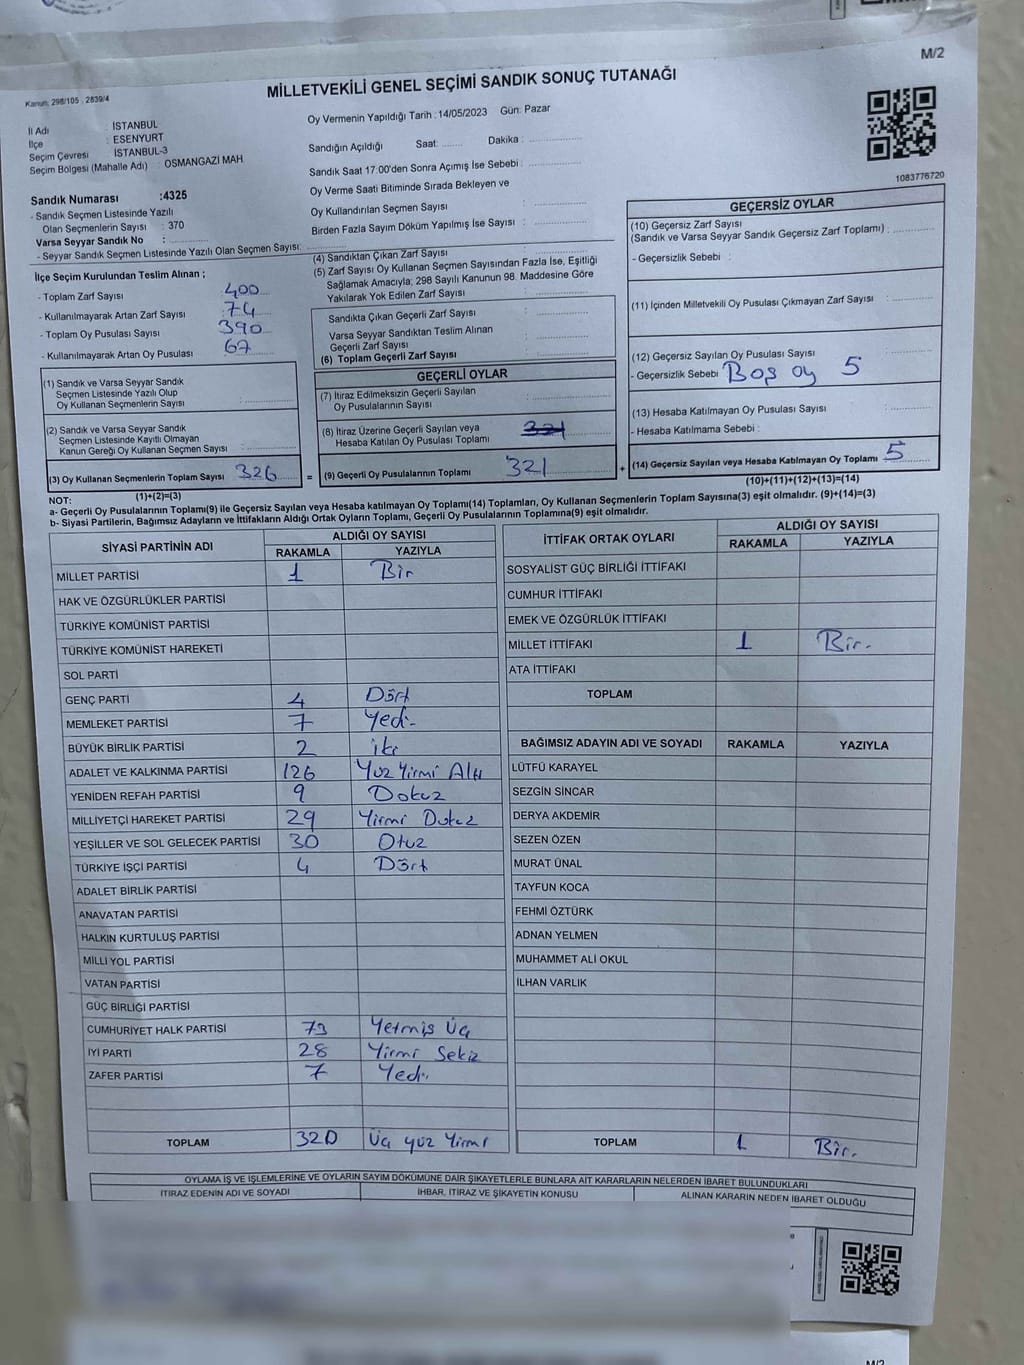 M/2
Kanun; 298/105 , 2839/4
MİLLETVEKİLİ GENEL SEÇİMİ SANDIK SONUÇ TUTANAĞI
İl Adı : İSTANBUL
İlçe : ESENYURT
Seçim Çevresi : İSTANBUL-3
Seçim Bölgesi (Mahalle Adı) : OSMANGAZİ MAH
Oy Vermenin Yapıldığı Tarih : 14/05/2023 Gün: Pazar
Sandığın Açıldığı Saat: ........ Dakika : ................
Sandık Saat 17:00'den Sonra Açımış İse Sebebi : ................
Oy Verme Saati Bitiminde Sırada Bekleyen ve
Oy Kullandırılan Seçmen Sayısı : ................
Birden Fazla Sayım Döküm Yapılmış İse Sayısı : ................
1083776720
Sandık Numarası :4325
- Sandık Seçmen Listesinde Yazılı
Olan Seçmenlerin Sayısı : 370
Varsa Seyyar Sandık No : ................
- Seyyar Sandık Seçmen Listesinde Yazılı Olan Seçmen Sayısı: ................
İlçe Seçim Kurulundan Teslim Alınan ;
- Toplam Zarf Sayısı : 400
- Kullanılmayarak Artan Zarf Sayısı : 74
- Toplam Oy Pusulası Sayısı : 390
- Kullanılmayarak Artan Oy Pusulası : 67
(1) Sandık ve Varsa Seyyar Sandık
Seçmen Listesinde Yazılı Olup
Oy Kullanan Seçmenlerin Sayısı : ................
(2) Sandık ve Varsa Seyyar Sandık
Seçmen Listesinde Kayıtlı Olmayan
Kanun Gereği Oy Kullanan Seçmen Sayısı : ................
(3) Oy Kullanan Seçmenlerin Toplam Sayısı 326 =
(1)+(2)=(3)
(4) Sandıktan Çıkan Zarf Sayısı : ................
(5) Zarf Sayısı Oy Kullanan Seçmen Sayısından Fazla İse, Eşitliği
Sağlamak Amacıyla; 298 Sayılı Kanunun 98. Maddesine Göre
Yakılarak Yok Edilen Zarf Sayısı : ................
Sandıkta Çıkan Geçerli Zarf Sayısı : ................
Varsa Seyyar Sandıktan Teslim Alınan
Geçerli Zarf Sayısı : ................
(6) Toplam Geçerli Zarf Sayısı : ................
GEÇERLİ OYLAR
(7) İtiraz Edilmeksizin Geçerli Sayılan
Oy Pusulalarının Sayısı : ................
(8) İtiraz Üzerine Geçerli Sayılan veya
Hesaba Katılan Oy Pusulası Toplamı : 321
(9) Geçerli Oy Pusulalarının Toplamı 321 +
GEÇERSİZ OYLAR
(10) Geçersiz Zarf Sayısı
(Sandık ve Varsa Seyyar Sandık Geçersiz Zarf Toplamı) : ................
- Geçersizlik Sebebi :
(11) İçinden Milletvekili Oy Pusulası Çıkmayan Zarf Sayısı : ................
(12) Geçersiz Sayılan Oy Pusulası Sayısı : ................
- Geçersizlik Sebebi Boş oy 5
(13) Hesaba Katılmayan Oy Pusulası Sayısı : ................
- Hesaba Katılmama Sebebi :
(14) Geçersiz Sayılan veya Hesaba Katılmayan Oy Toplamı : 5
(10)+(11)+(12)+(13)=(14)
NOT:
a- Geçerli Oy Pusulalarının Toplamı(9) ile Geçersiz Sayılan veya Hesaba katılmayan Oy Toplamı(14) Toplamları, Oy Kullanan Seçmenlerin Toplam Sayısına(3) eşit olmalıdır. (9)+(14)=(3)
b- Siyasi Partilerin, Bağımsız Adayların ve İttifakların Aldığı Ortak Oyların Toplamı, Geçerli Oy Pusulalarının Toplamına(9) eşit olmalıdır.
SİYASİ PARTİNİN ADI ALDIĞI OY SAYISI
RAKAMLA YAZIYLA
MİLLET PARTİSİ 1 Bir
HAK VE ÖZGÜRLÜKLER PARTİSİ
TÜRKİYE KOMÜNİST PARTİSİ
TÜRKİYE KOMÜNİST HAREKETİ
SOL PARTİ
GENÇ PARTİ 4 Dört
MEMLEKET PARTİSİ 7 Yedi
BÜYÜK BİRLİK PARTİSİ 2 iki
ADALET VE KALKINMA PARTİSİ 126 Yüz Yirmi Altı
YENİDEN REFAH PARTİSİ 9 Dokuz
MİLLİYETÇİ HAREKET PARTİSİ 29 Yirmi Dokuz
YEŞİLLER VE SOL GELECEK PARTİSİ 30 Otuz
TÜRKİYE İŞÇİ PARTİSİ 4 Dört
ADALET BİRLİK PARTİSİ
ANAVATAN PARTİSİ
HALKIN KURTULUŞ PARTİSİ
MİLLİ YOL PARTİSİ
VATAN PARTİSİ
GÜÇ BİRLİĞİ PARTİSİ
CUMHURİYET HALK PARTİSİ 73 Yetmiş Üç
İYİ PARTİ 28 Yirmi Sekiz
ZAFER PARTİSİ 7 Yedi
TOPLAM 320 Üç yüz Yirmi
İTTİFAK ORTAK OYLARI ALDIĞI OY SAYISI
RAKAMLA YAZIYLA
SOSYALİST GÜÇ BİRLİĞİ İTTİFAKI
CUMHUR İTTİFAKI
EMEK VE ÖZGÜRLÜK İTTİFAKI
MİLLET İTTİFAKI 1 Bir.
ATA İTTİFAKI
TOPLAM
BAĞIMSIZ ADAYIN ADI VE SOYADI RAKAMLA YAZIYLA
LÜTFÜ KARAYEL
SEZGİN SİNCAR
DERYA AKDEMİR
SEZEN ÖZEN
MURAT ÜNAL
TAYFUN KOCA
FEHMİ ÖZTÜRK
ADNAN YELMEN
MUHAMMET ALİ OKUL
İLHAN VARLIK
TOPLAM 1 Bir.
OYLAMA İŞ VE İŞLEMLERİNE VE OYLARIN SAYIM DÖKÜMÜNE DAİR ŞİKAYETLERLE BUNLARA AİT KARARLARIN NELERDEN İBARET BULUNDUKLARI
İTİRAZ EDENİN ADI VE SOYADI İHBAR, İTİRAZ VE ŞİKAYETİN KONUSU ALINAN KARARIN NEDEN İBARET OLDUĞU
M/2